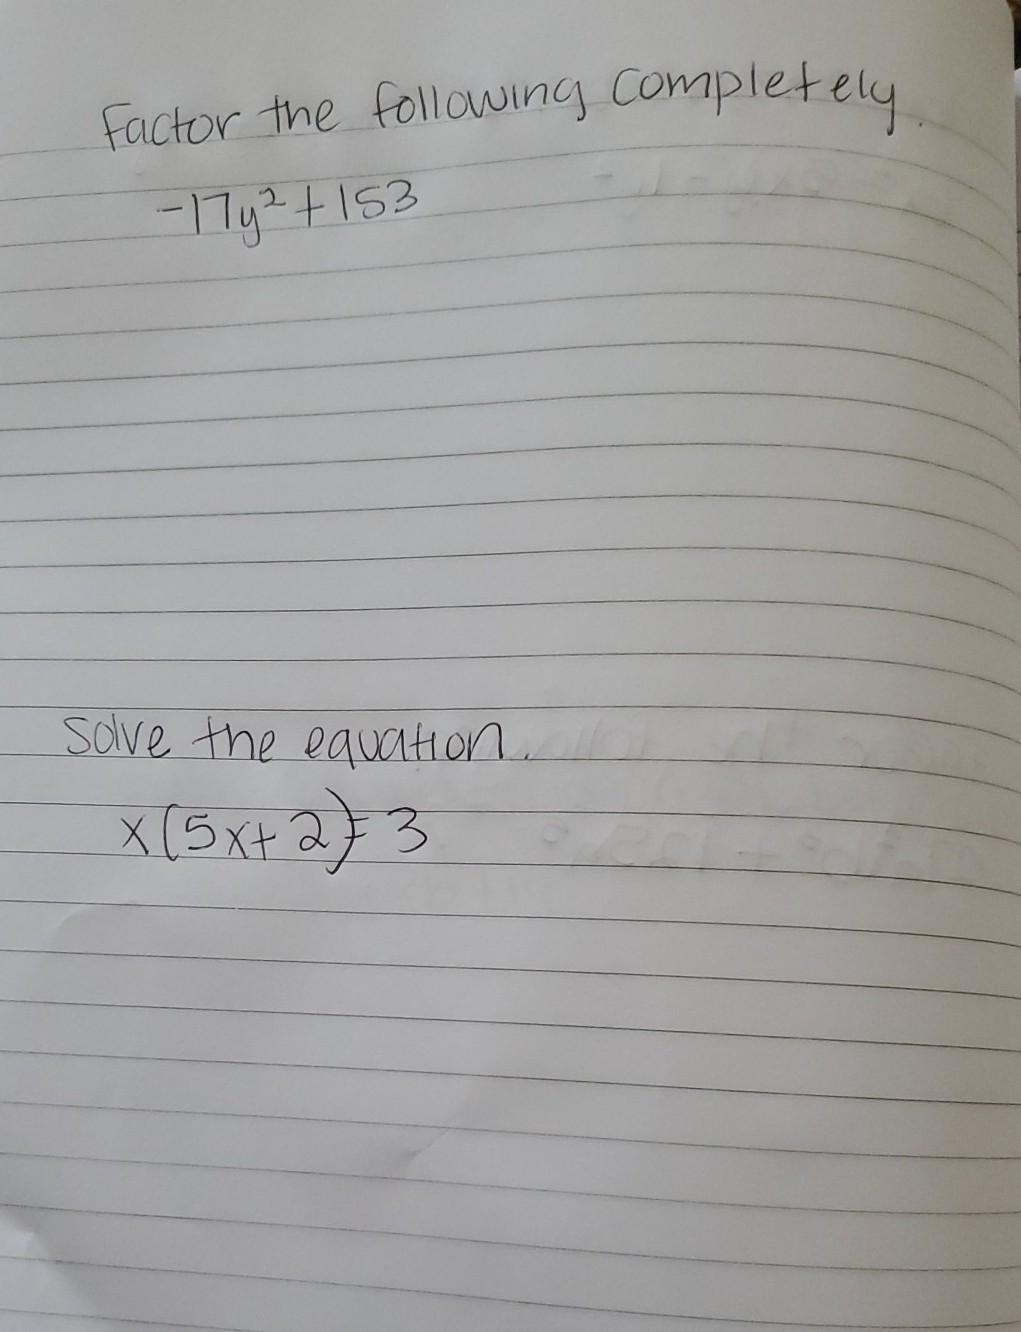 Factor the following completely.
-17y²+153
Solve the equation.
x(5x+2)=3